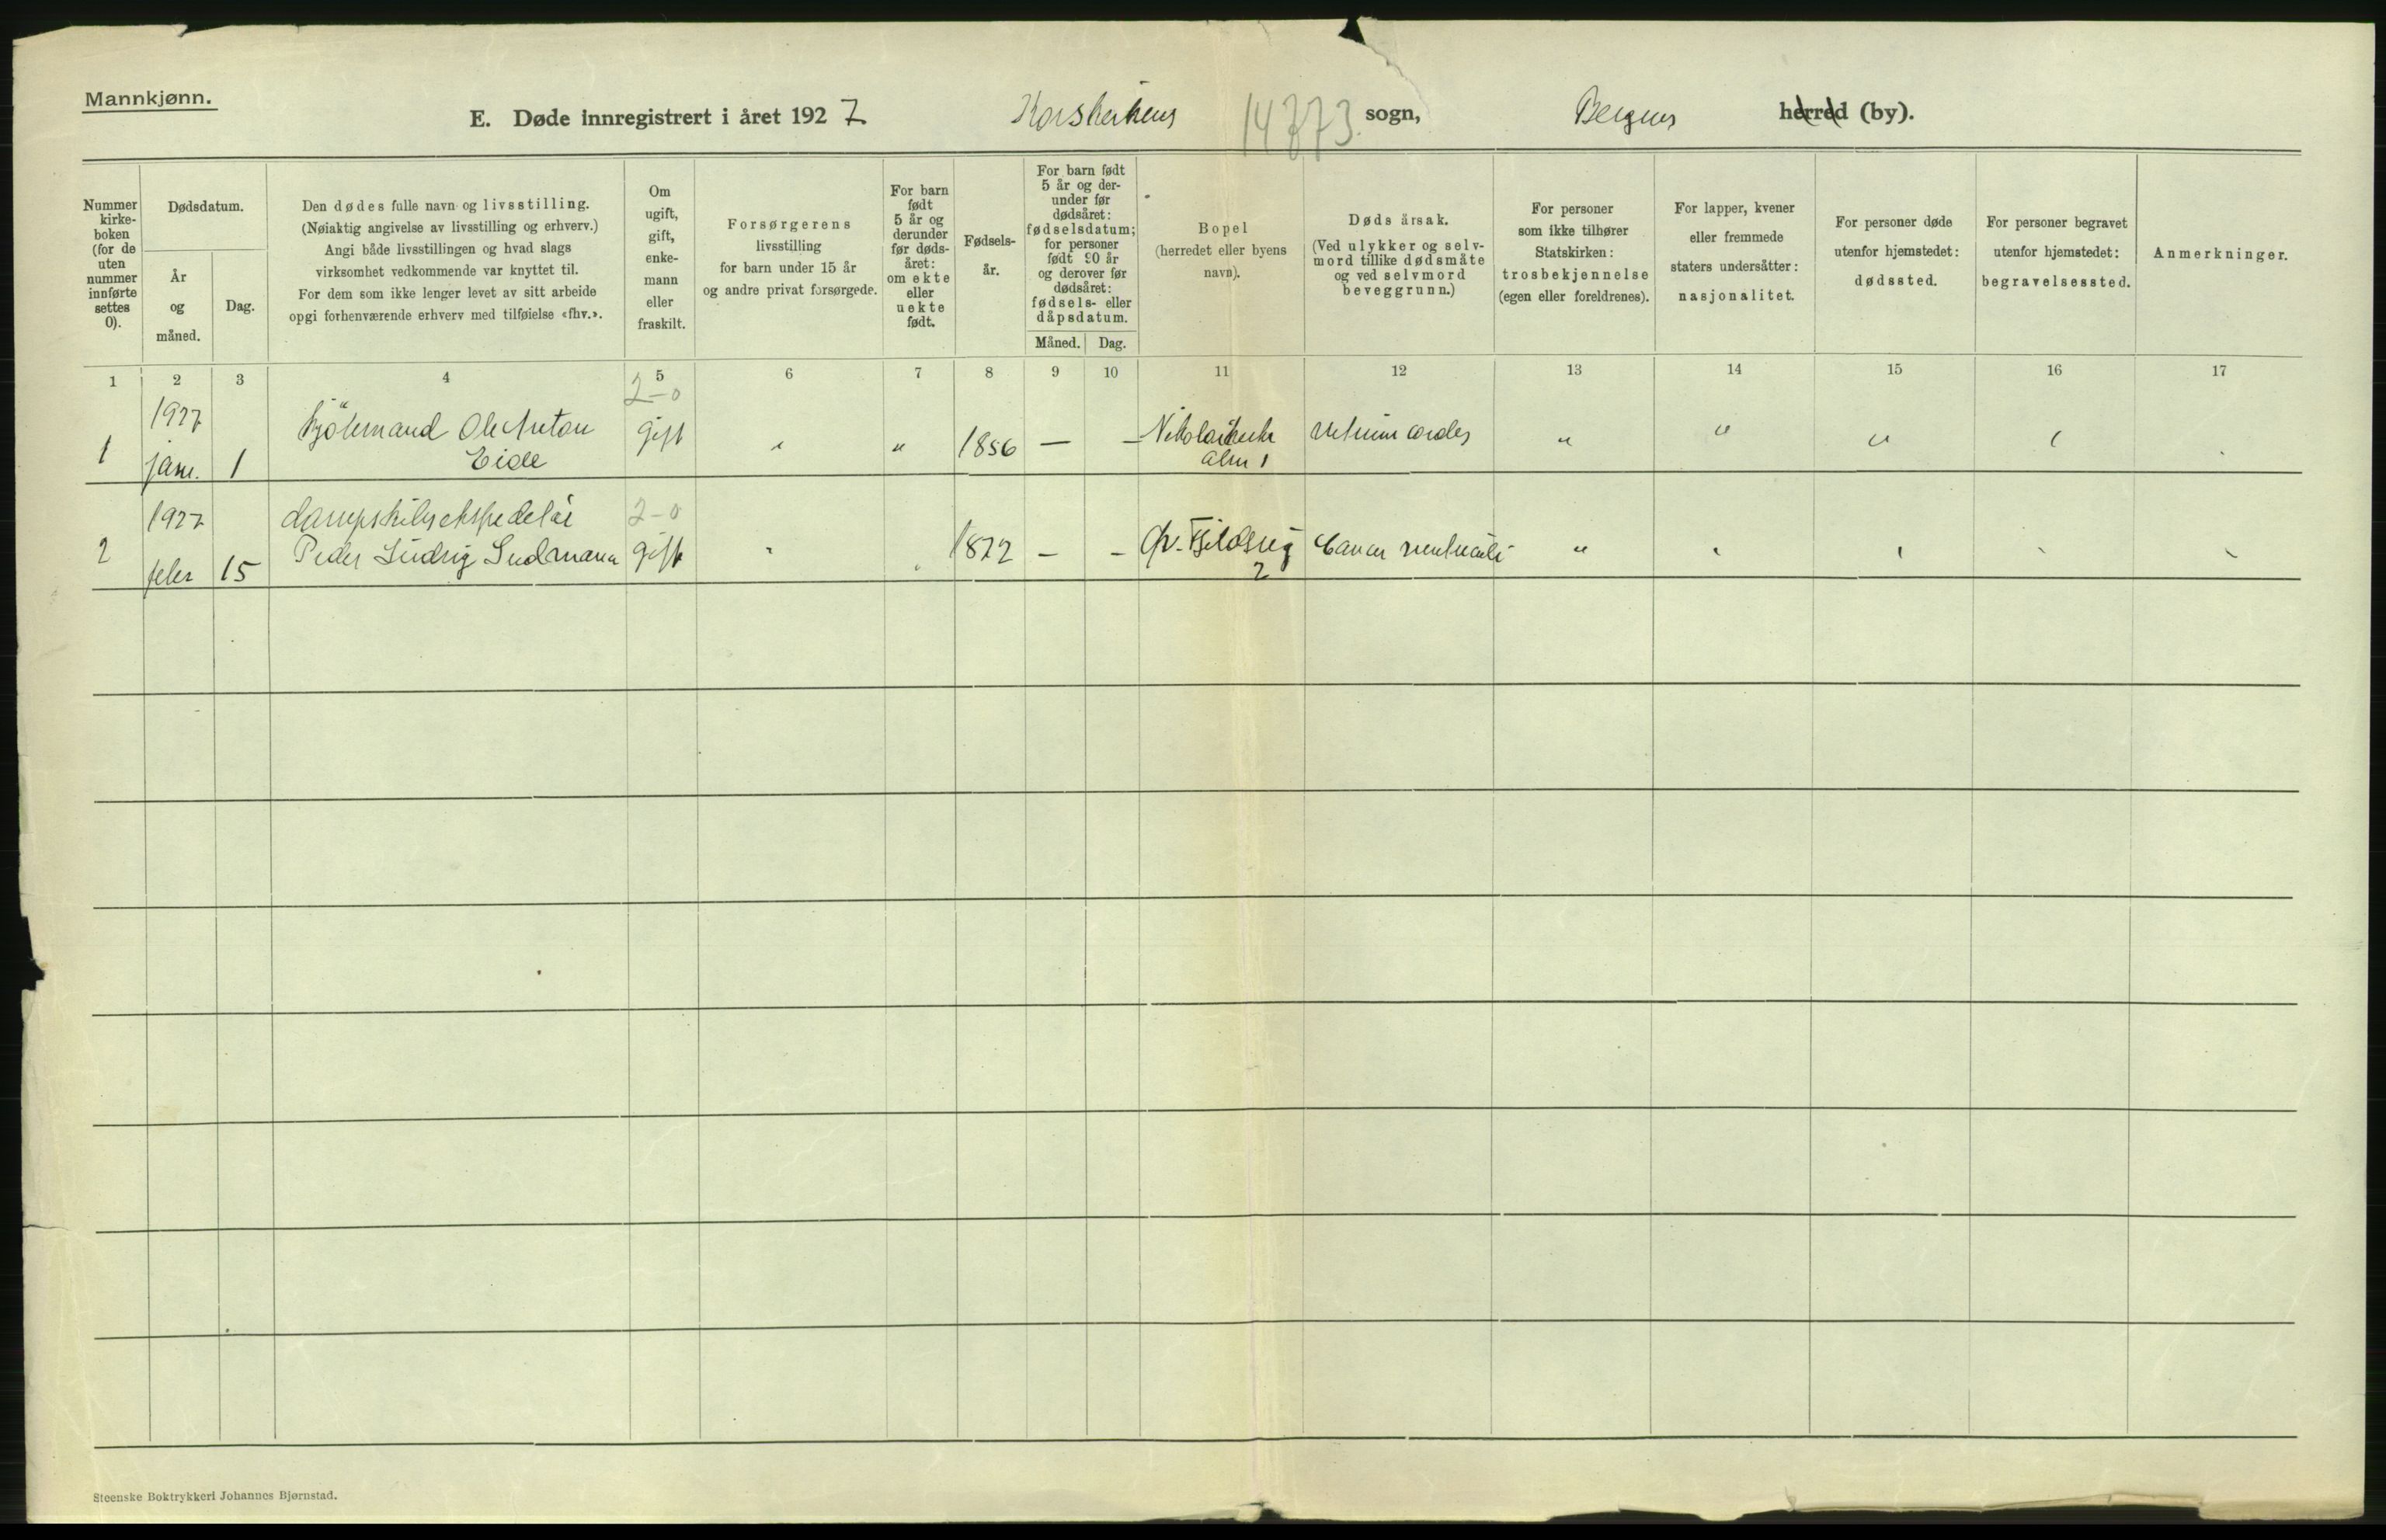 Mannkjønn.
E. Døde innregistrert i året 1927 Korskirkens 14773. sogn, Bergens herred (by).
Nummer
kirke-
boken
(for de
uten
nummer
innførte
settes
0).
Dødsdatum.
År
og
måned.
Dag.
Den dødes fulle navn og livsstilling.
(Nøiaktig angivelse av livsstilling og erhverv.)
Angi både livsstillingen og hvad slags
virksomhet vedkommende var knyttet til.
For dem som ikke lenger levet av sitt arbeide
opgi forhenværende erhverv med tilføielse «fhv.».
Om
ugift,
gift,
enke-
mann
eller
fraskilt.
Forsørgerens
livsstilling
for barn under 15 år
og andre privat forsørgede.
For barn
født
5 år og
derunder
før døds-
året:
om ekte
eller
uekte
født.
Fødsels-
år.
For barn født
5 år og der-
under før
dødsåret:
fødselsdatum;
for personer
født 90 år
og derover før
dødsåret:
fødsels- eller
dåpsdatum.
Måned. Dag.
Bopel
(herredet eller byens
navn).
Dødsårsak.
(Ved ulykker og selv-
mord tillike dødsmåte
og ved selvmord
beveggrunn.)
For personer
som ikke tilhører
Statskirken:
trosbekjennelse
(egen eller foreldrenes).
For lapper, kvener
eller fremmede
staters undersåtter:
nasjonalitet.
For personer døde
utenfor hjemstedet:
dødssted.
For personer begravet
utenfor hjemstedet:
begravelsessted.
Anmerkninger.
1 2 3 4 5 6 7 8 9 10 11 12 13 14 15 16 17
2-0
1927
Ole Anton gift " " 1856 — — cordis " " " "
1 jan. 1 Eide alm 1
1927 dampskibsekspeditør 2-0
2 Peder Ludvig gift " " 1872 — — Cancer ventriculi "
febr 15 2
Steenske Boktrykkeri Johannes Bjørnstad.